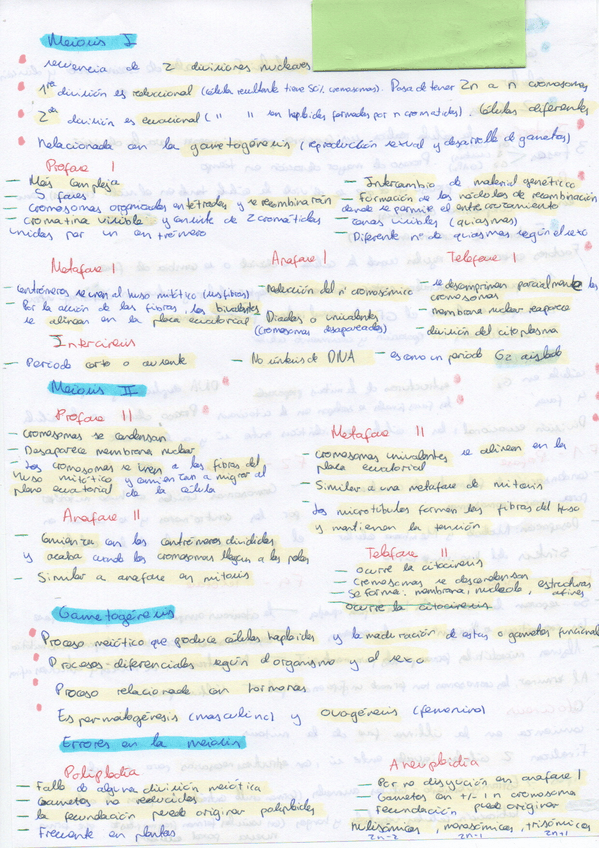 Meiosis I
secuencia de 2 divisiones nucleares
1ra división es reduccional (células resultante tiene 50% cromosomas). Pasa de tener 2n a n cromosomas
2da división es ecuacional (" " son haploides formadas por n cromatides). Células diferentes
Relacionada con la gametogénesis (reproducción sexual y desarrollo de gametos)
Profase I
- Más compleja
- 5 fases
- Cromosomas organizados en tétradas y se recombinarán
- cromatina visible y consiste de 2 cromátides
unidas por un centrómero
- Intercambio de material genético
- Formación de los nódulos de recombinación
donde se permite el entrecruzamiento
- zonas visibles (quiasmas)
- Diferente nº de quiasmas según el sexo
Metafase I
- centrómeros se unen al huso mitótico (sus fibras)
- Por la acción de las fibras, los bivalentes
se alinean en la placa ecuatorial
Anafase I
- Reducción del nº cromosómico
- Diadas o univalentes
(cromosomas desapareados)
Telofase I
- se descomprimen parcialmente los
cromosomas
- membrana nuclear reaparece
- división del citoplasma
Intercinesis
- Periodo corto o ausente
- No síntesis de DNA
- es como un periodo G2 aislado
Meiosis II
Profase II
- Cromosomas se condensan
- Desaparece membrana nuclear
- Los cromosomas se unen a las fibras del
Huso mitótico y comienzan a migrar al
plano ecuatorial de la célula
Metafase II
- cromosomas univalentes se alinean en la
placa ecuatorial
- Similar a una metafase de mitosis
- Los microtúbulos forman las fibras del huso
y mantienen la tensión
Anafase II
- Comienza con los centrómeros divididos
y acaba cuando los cromosomas llegan a los polos
- Similar a anafase en mitosis
Telofase II
- ocurre la citocinesis
- Cromosomas se descondensan
- Se forma, membrana, nucleolo, estructuras afines
- ocurre la citocinesis
Gametogénesis
Proceso meiótico que produce células haploides y la maduración de estas a gametos funcional
Procesos diferenciales según el organismo y el sexo
Proceso relacionado con hormonas
Espermatogénesis (masculino) y ovogénesis (femenino)
Errores en la meiosis
Poliploidía
- Fallo de alguna división meiótica
- Gametos no reducidos
- la fecundación puede originar poliploides
- Frecuente en plantas
Aneuploidía
- Por no disyunción en anafase I
- Gametos con +/- 1 n cromosoma
- Fecundación puede originar
nulisómicos, monosómicos, trisómicos
2n-2 2n-1 2n+1